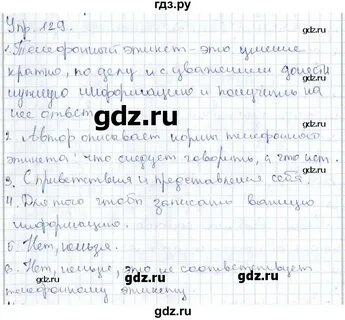 гдз.ру
Упр. 129.
1. Телефонный этикет - это умение
кратко, по делу и с уважением донести
нужную информацию и получить на
нее ответ.
2. Автор описывает нормы телефонного
этикета: что следует говорить, а что нет.
3. С приветствия и представления себя.
4. Для того чтобы записать важную
информацию.
5. Нет, нельзя.
6. Нет, нельзя, это не соответствует
телефонному этикету.
gdz.ru
gdz.ru
gdz.ru
gdz.ru
gdz.ru
gdz.ru
gdz.ru
gdz.ru